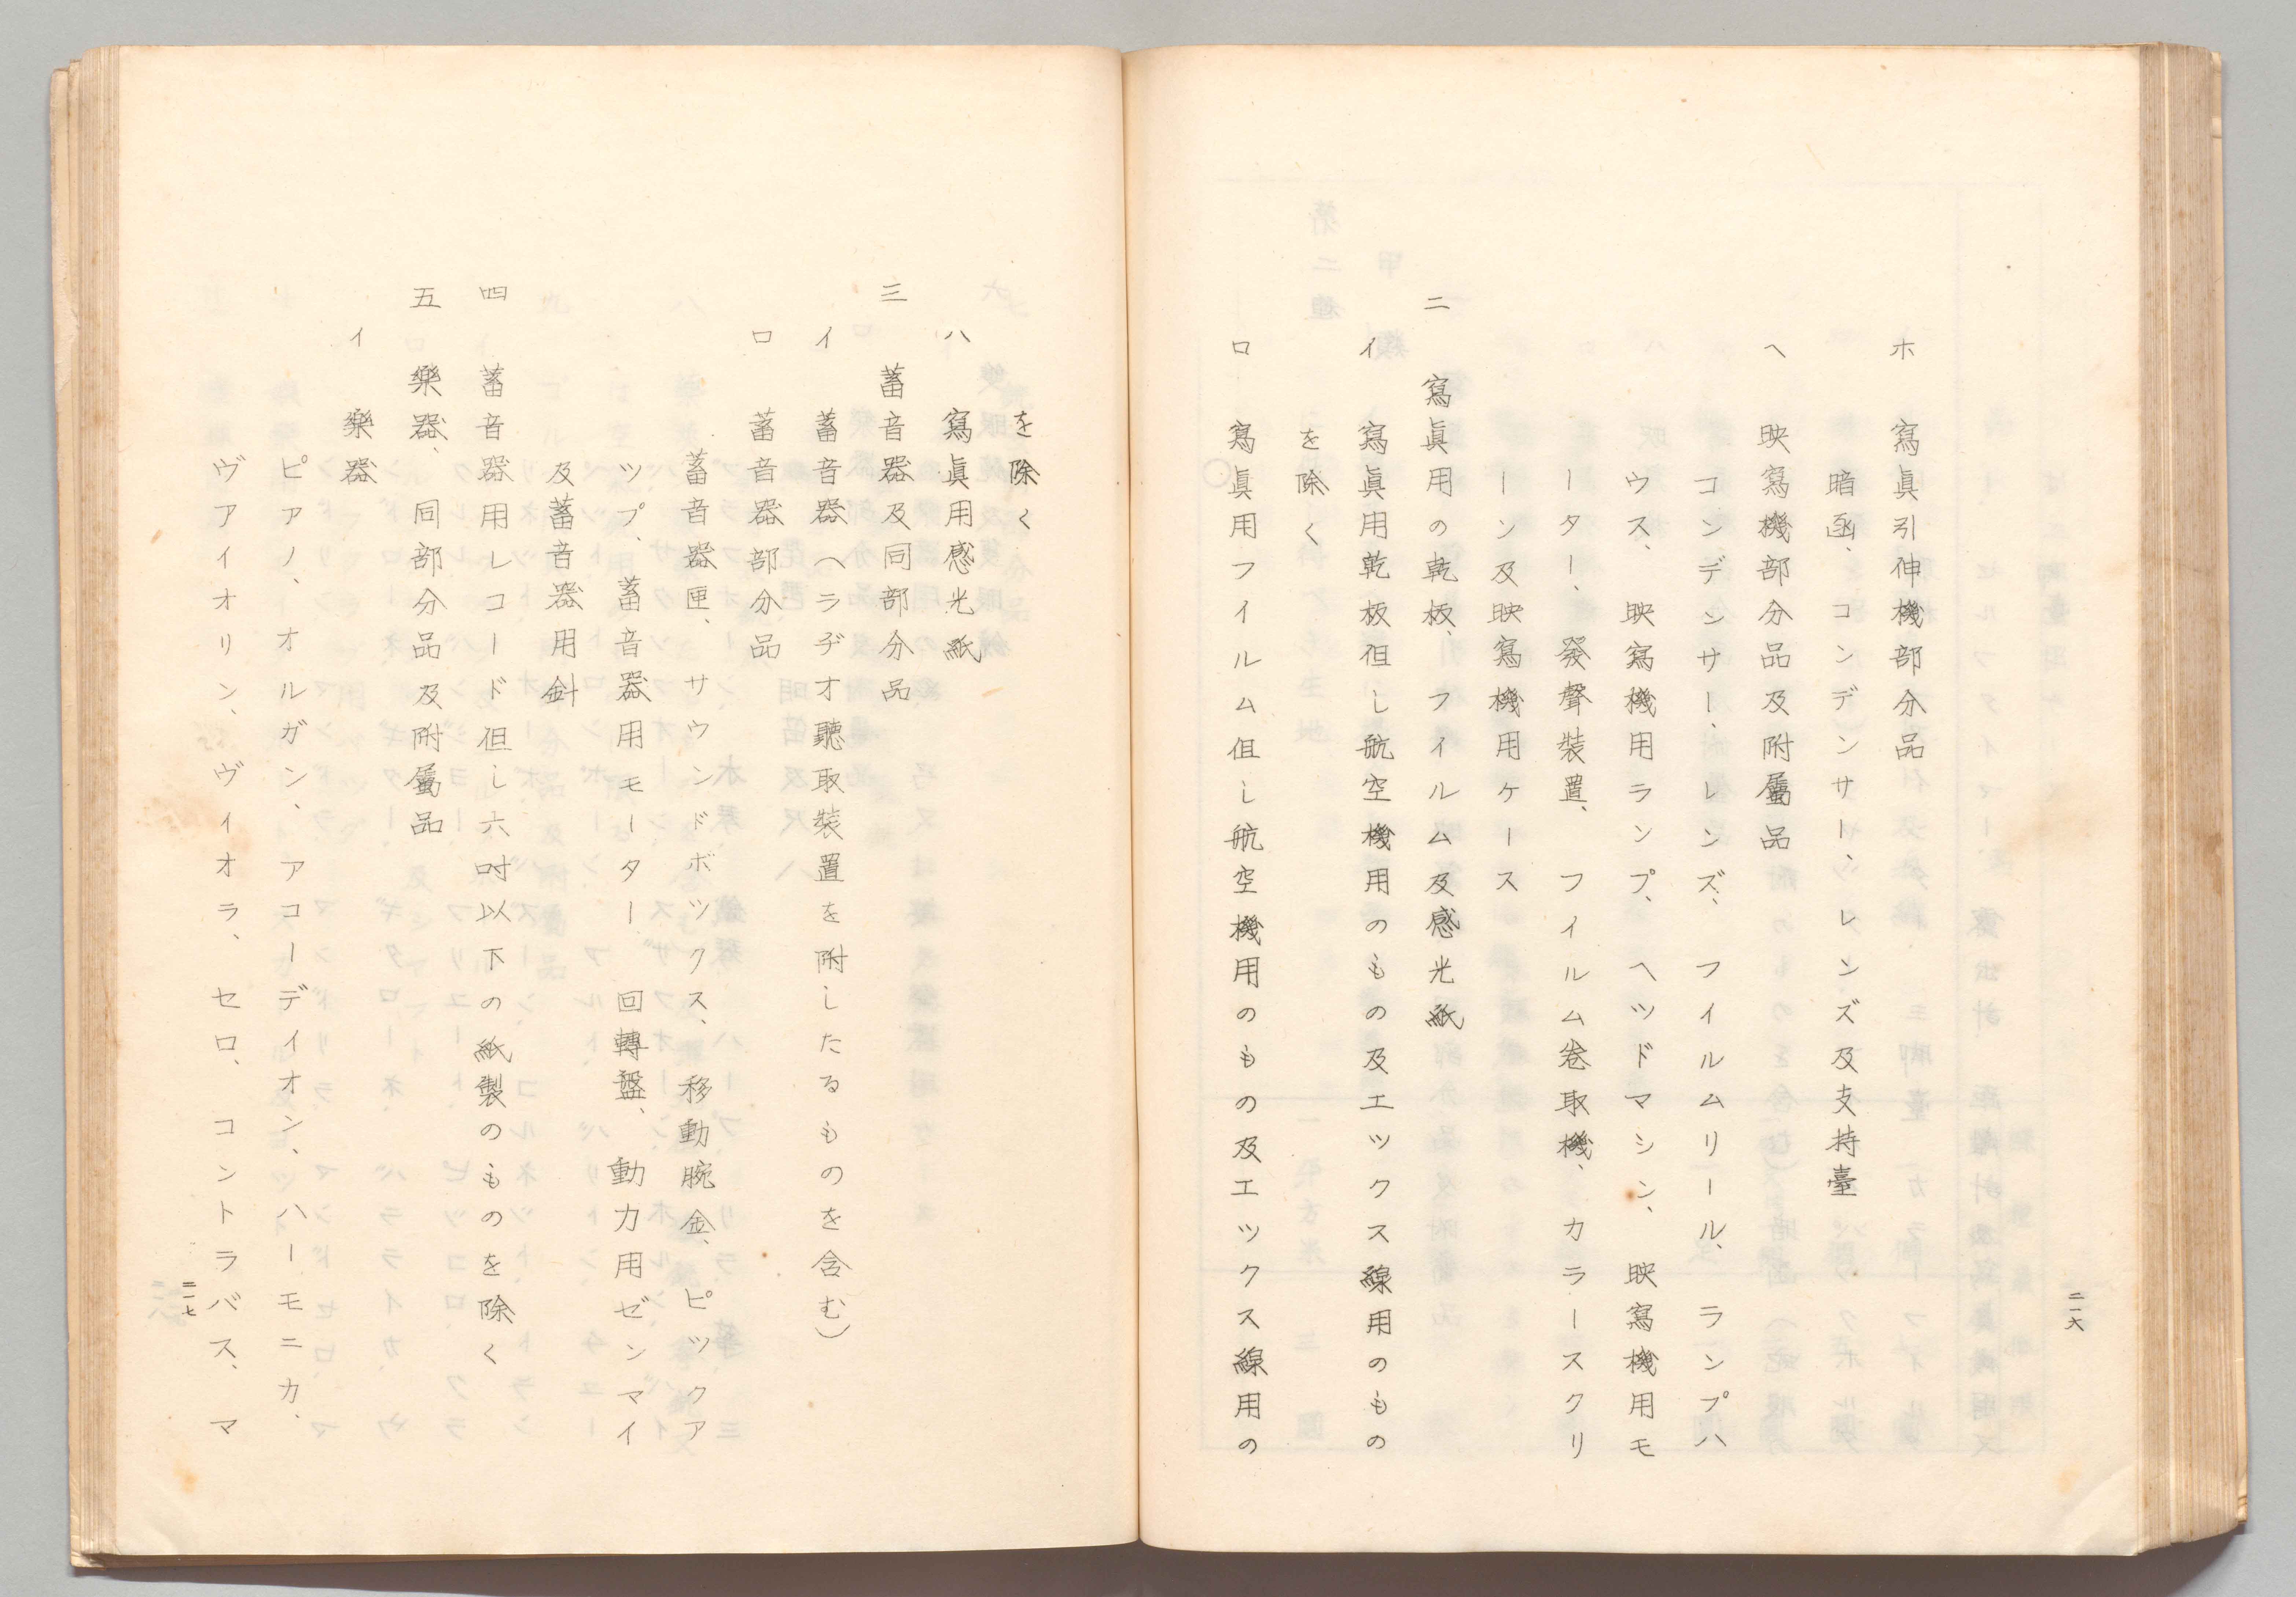 ホ　寫眞引伸機部分品
暗函、コンデンサー、レンズ及支持臺
ヘ　映寫機部分品及附屬品
コンデンサー、レンズ、フイルムリール、ランプハ
ウス、映寫機用ランプ、ヘツドマシン、映寫機用モ
ーター、發聲裝置、フイルム卷取機、カラースクリ
ーン及映寫機用ケース
二　寫眞用の乾板、フイルム及感光紙
イ　寫眞用乾板但し航空機用のもの及エツクス線用のもの
を除く
ロ　寫眞用フイルム但し航空機用のもの及エツクス線用の
二一六
を除く
ハ　寫眞用感光紙
三　蓄音器及同部分品
イ　蓄音器（ラヂオ聽取裝置を附したるものを含む）
ロ　蓄音器部分品
蓄音器匣、サウンドボツクス、移動腕金、ピツクア
ツプ、蓄音器用モーター、回轉盤、動力用ゼンマイ
及蓄音器用針
四　蓄音器用レコード但し六吋以下の紙製のものを除く
五　樂器、同部分品及附屬品
イ　樂器
ピアノ、オルガン、アコーデイオン、ハーモニカ、
ヴアイオリン、ヴイオラ、セロ、コントラバス、マ
二一七